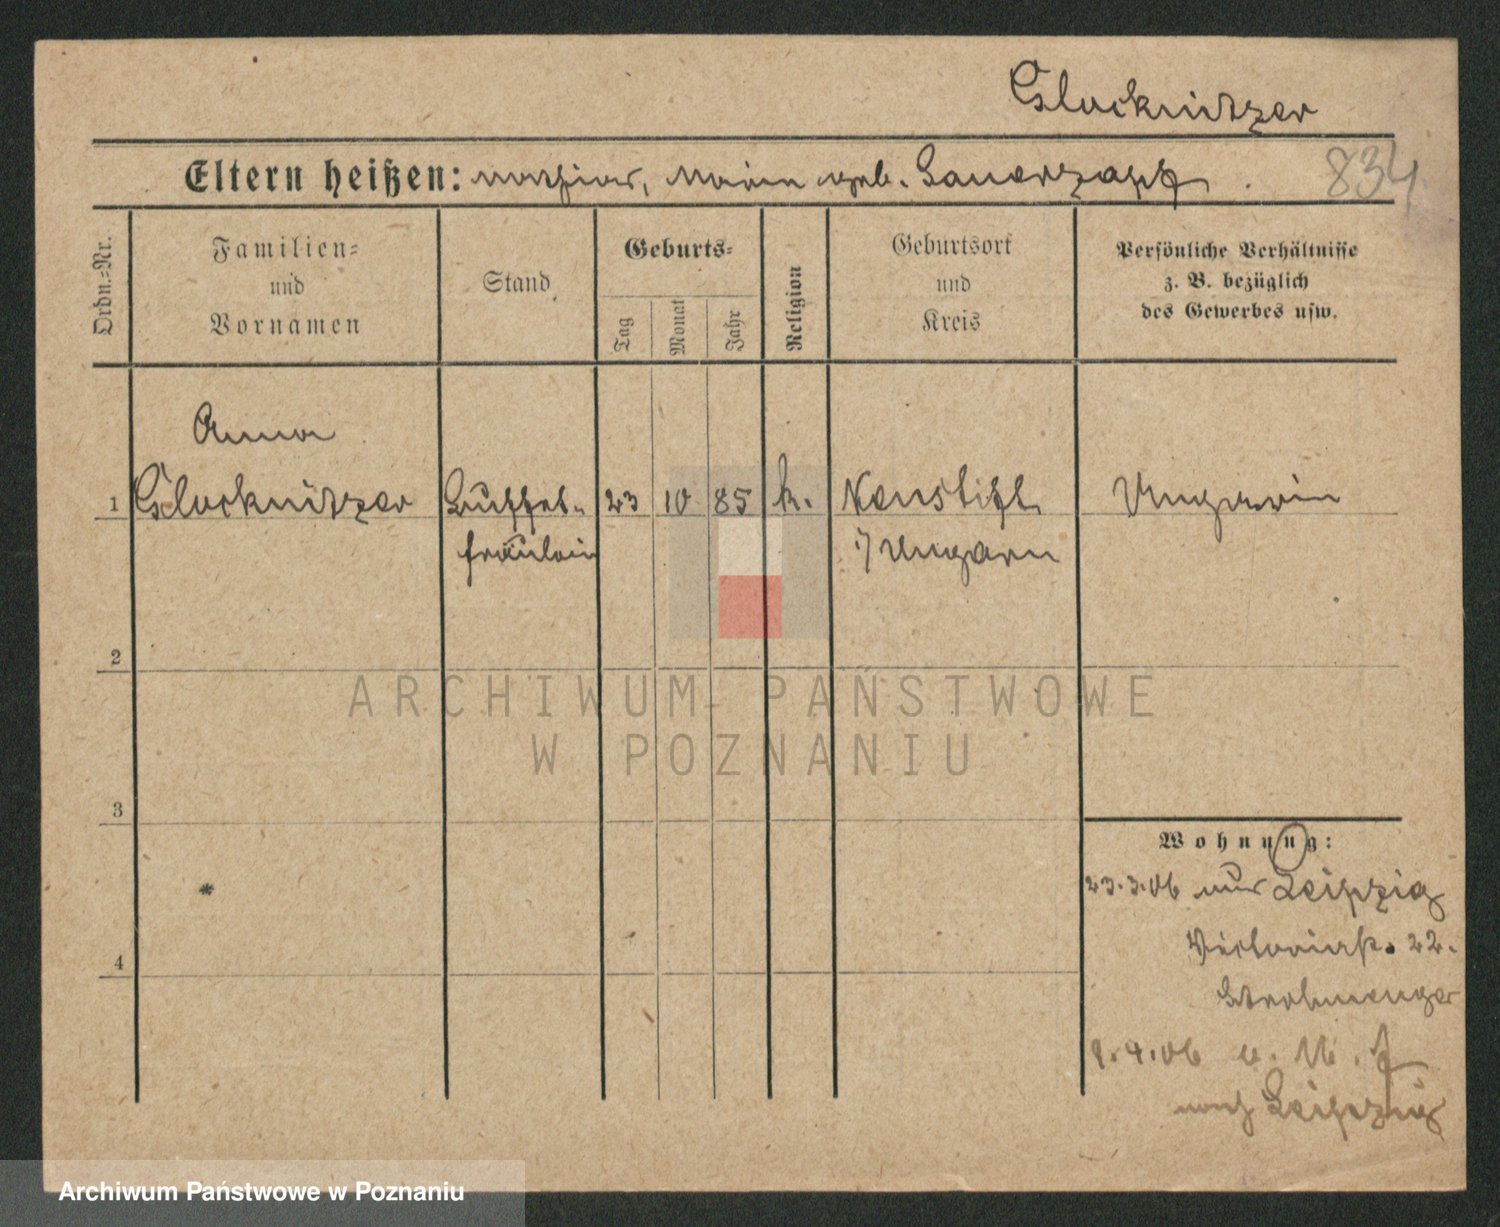 Glocknitzer
Eltern heißen: Mathias, Maria geb. Sauerzapf.
834
Ordn.-Nr.
Familien- und Vornamen
Stand
Geburts-
Tag
Monat
Jahr
Religion
Geburtsort und Kreis
Persönliche Verhältnisse z. B. bezüglich des Gewerbes usw.
Anna
1 Glocknitzer Buffet- 23 10 85 k. Neustift Ungarin
fräulein i/Ungarn
2
ARCHIWUM PAŃSTWOWE
W POZNANIU
3
4
Wohnung:
23.3.06 aus Leipzig
Victoriastr. 22.
Strohmenger
9.4.06
nach Leipzig
Archiwum Państwowe w Poznaniu